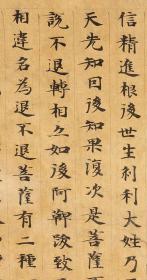 信精進根後世生刹利大姓乃
天先知因後知果復次是菩薩
說不退轉相亦如後阿鞞跋致
相違名為退不退菩薩有二種